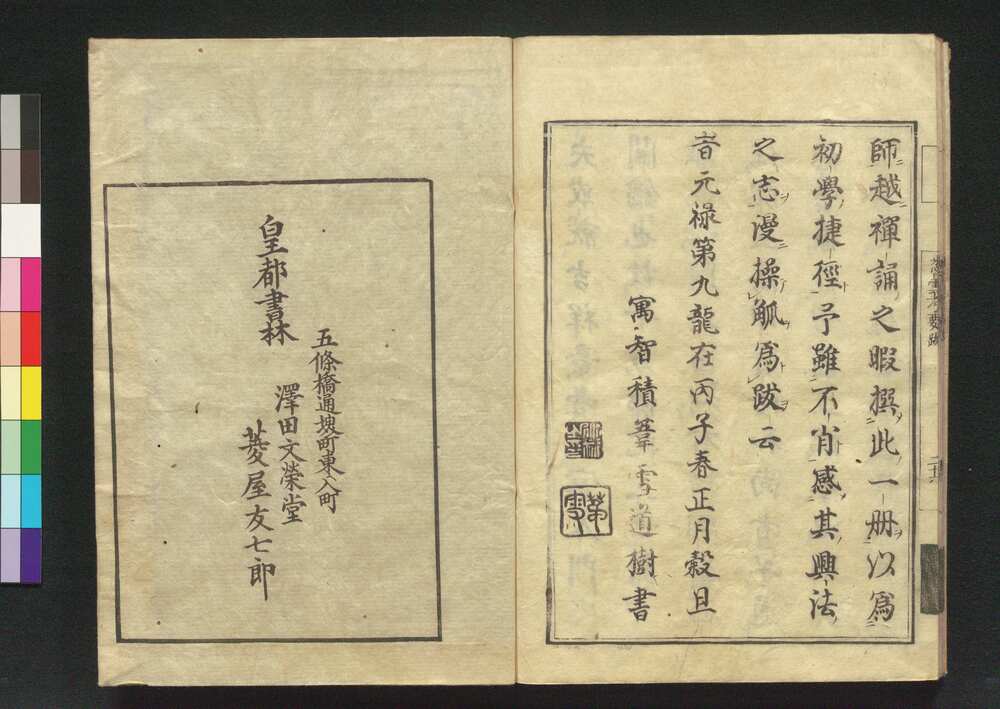 師越禪誦之暇撰此一册以爲
初學捷徑予雖不肖感其興法
之志漫操觚爲跋云
旹元禄第九龍在丙子春正月穀旦
寓智積葦雪道樹書
葦雪
皇都書林
五條橋通堺町東入町
澤田文榮堂
菱屋友七郎